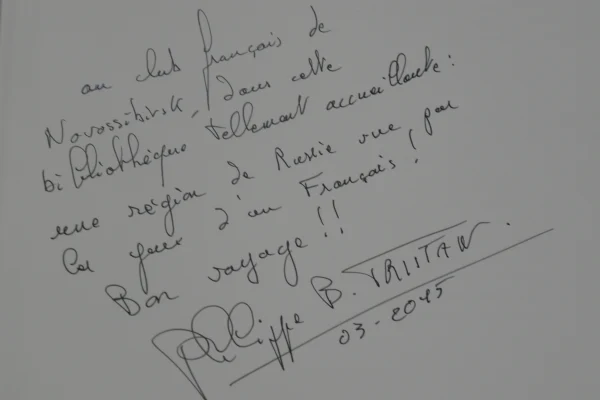 au club français de
Novossibirsk, dans cette
bibliothèque tellement accueillante :
une région de Russie vue par
les yeux d'un Français !
Bon voyage !!
Philippe B. TRISTAN.
03-2015